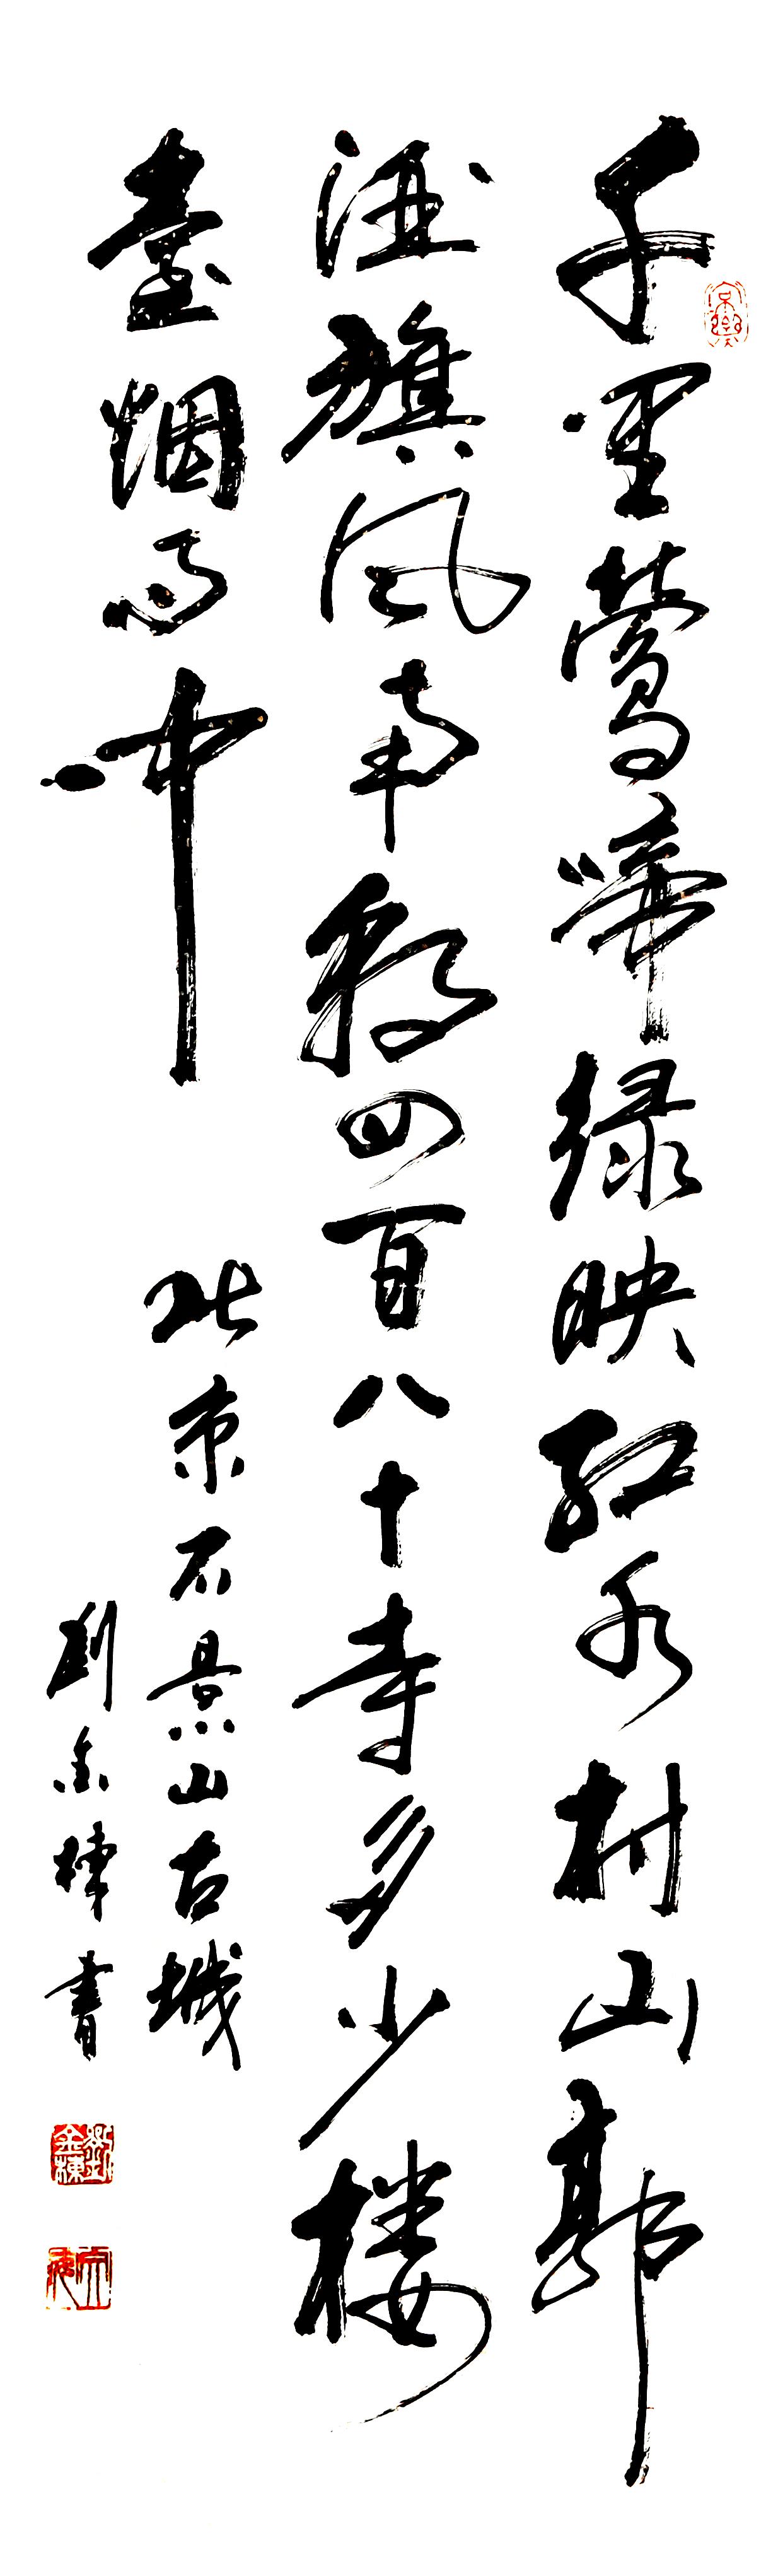 千里莺啼绿映红水村山郭
酒旗风南朝四百八十寺多少楼
臺烟雨中
北京石景山古城
劉金棟書
劉金棟